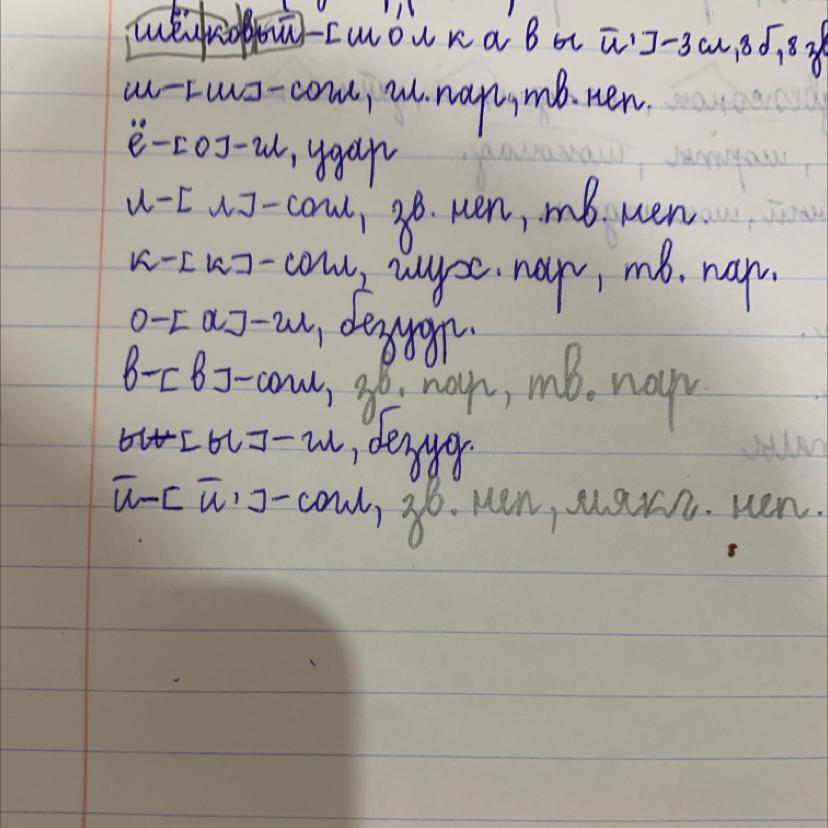 шёлковый-[шо́лкавый']-3 сл, 8 б, 8 зв
ш-[ш]-согл, гл. пар, тв. неп.
ё-[о]-гл, удар
л-[л]-согл, зв. неп, тв. неп.
к-[к]-согл, глух. пар, тв. пар.
о-[а]-гл, безудр.
в-[в]-согл, зв. пар, тв. пар.
ы-[ы]-гл, безуд.
й-[й']-согл, зв. неп, мякг. неп.